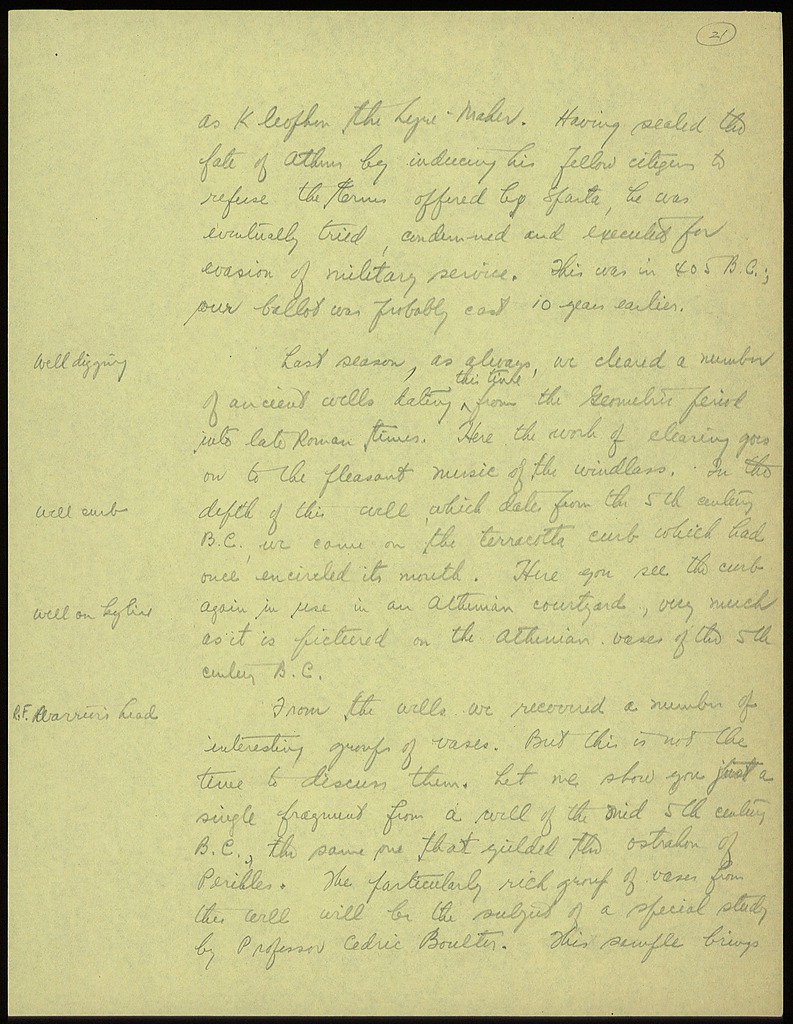 21
as Kleophon the Lyre-Maker. Having sealed the
fate of Athens by inducing his fellow citizens to
refuse the terms offered by Sparta, he was
eventually tried, condemned and executed for
evasion of military service. This was in 405 B.C.;
our ballot was probably cast 10 years earlier.
Well digging
Last season, as always, we cleared a number
this time
of ancient wells dating ^ from the Geometric period
into late Roman times. Here the work of clearing goes
on to the pleasant music of the windlass. In the
well curb
depth of this well, which dates from the 5th century
B.C., we came on the terracotta curb which had
once encircled its mouth. Here you see the curb
well on kylix
again in use in an Athenian courtyard, very much
as it is pictured on the Athenian vases of the 5th
century B.C.
R.F. Warrior's head
From the wells we recovered a number of
interesting groups of vases. But this is not the
time to discuss them. Let me show you just a
single fragment from a well of the mid 5th century
B.C., the same one that yielded the ostrakon of
Perikles. The particularly rich group of vases from
this well will be the subject of a special study
by Professor Cedric Boulter. This sample brings